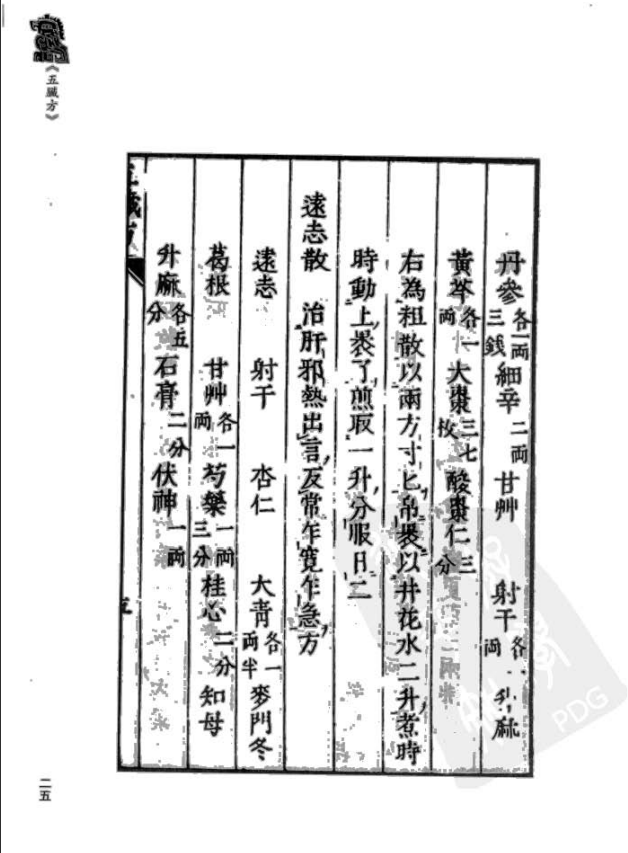 《五臟方》
丹參各一兩三銭細辛二兩甘艸 射干各一兩升麻
黃芩各一兩大棗三七枚酸棗仁三分
右為粗散以兩方寸匕帛裹以井花水二升煮時
時動上裹了煎取一升分服日二
遠志散 治肝邪熱出言反常乍寬乍急方
遠志 射干 杏仁 大青各一兩半麥門冬
葛根 甘艸各一兩芍藥一兩三分桂心二分知母
升麻各五分石膏二分伏神一兩
二五
PDG